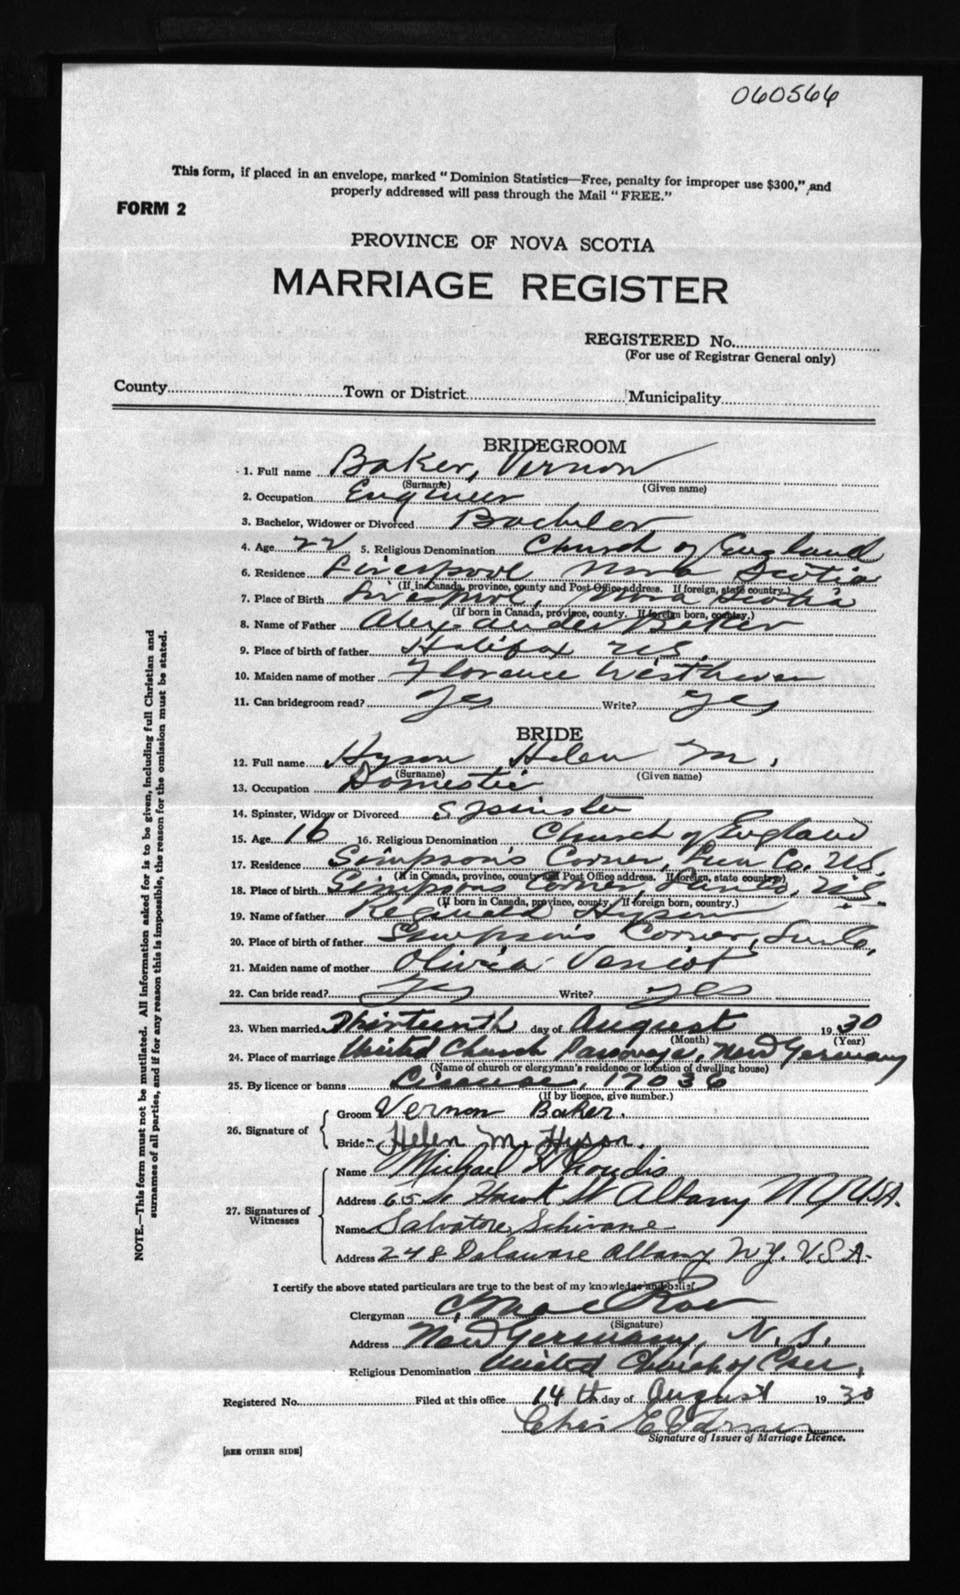 060566
This form, if placed in an envelope, marked "Dominion Statistics—Free, penalty for improper use $300," and
properly addressed will pass through the Mail "FREE."
FORM 2
PROVINCE OF NOVA SCOTIA
MARRIAGE REGISTER
REGISTERED No.
(For use of Registrar General only)
County Town or District Municipality
BRIDEGROOM
1. Full name Baker, Vernon
(Surname) (Given name)
2. Occupation Engineer
3. Bachelor, Widower or Divorced Bachelor
4. Age 22 5. Religious Denomination Church of England
6. Residence Liverpool Nova Scotia
(If in Canada, province, county and Post Office address. If foreign, state country.)
7. Place of Birth Liverpool, Nova Scotia
(If born in Canada, province, county. If foreign born, country.)
8. Name of Father Alexander Baker
9. Place of birth of father Halifax NS.
10. Maiden name of mother Florence Westhaver
11. Can bridegroom read? Yes Write? Yes
BRIDE
12. Full name Hyson Helen M.
(Surname) (Given name)
13. Occupation Domestic
14. Spinster, Widow or Divorced Spinster
15. Age 16 16. Religious Denomination Church of England
17. Residence Simpson's Corner, Lun Co. NS.
(If in Canada, province, county and Post Office address. If foreign, state country)
18. Place of birth Simpsons Corner, Lun Co, NS.
(If born in Canada, province, county. If foreign born, country.)
19. Name of father Reginald Hyson
20. Place of birth of father Simpson's Corner, Lun Co,
21. Maiden name of mother Olivia Veniot
22. Can bride read? Yes Write? Yes
23. When married Thirteenth day of August 1930
(Month) (Year)
24. Place of marriage United Church Parsonage, New Germany
(Name of church or clergyman's residence or location of dwelling house)
25. By licence or banns License, 17036
(If by licence, give number.)
26. Signature of Groom Vernon Baker.
Bride Helen M. Hyson.
27. Signatures of Witnesses
Name Michael
Address Hawk St Albany NY USA.
Name Salvatore Schirane
Address 248 Delaware Albany N.Y. U.S.A.
I certify the above stated particulars are true to the best of my knowledge and belief
Clergyman C. MacRae
(Signature)
Address New Germany, N.S.
Religious Denomination United Church of Can.
Registered No. Filed at this office 14th day of August 1930
Chas E
Signature of Issuer of Marriage Licence.
[SEE OTHER SIDE]
NOTE.—This form must not be mutilated. All information asked for is to be given, including full Christian and
surnames of all parties, and if for any reason this is impossible, the reason for the omission must be stated.